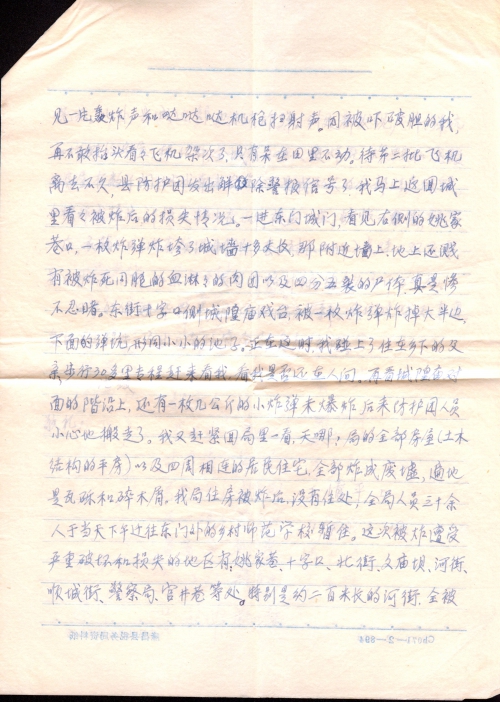 见一片轰炸声和哒哒哒机枪扫射声。周被吓破胆的我,
再不敢抬头看々飞机架次了,只有呆在田里不动。待第二批飞机
离去不久,县防护团发出解除警报信号了。我马上返回城
里看々被炸后的损失情况。一进东门城门,看见右侧的姚家
巷口,一枚炸弹炸垮了城墙十多米长,那附近墙上、地上还溅
有被炸死同胞的血淋々的肉团以及四分五裂的尸体,真是惨
不忍睹。东街十字口侧城隍庙戏台,被一枚炸弹炸掉大半边,
下面的弹坑,形同小小的池子。正在这时,我碰上了住在乡下的父
亲步行30多里专程赶来看我,看我是否还在人间。再看城隍庙对
面的阶沿上,还有一枚几公斤的小炸弹未爆炸,后来防护团人员
小心地搬走了。我又赶紧回局里一看,天哪!局的全部房屋(土木
结构的平房)以及四周相连的居民住宅,全部炸成废墟,遍地
是瓦砾和碎木屑。我局住房被炸后,没有住处,全局人员三十余
人于当天下午迁往东门外的乡村师范学校暂住。这次被炸遭受
严重破坏和损失的地区有:姚家巷、十字口、北街、文庙坝、河街、
顺城街、警察局、官井巷等处。特别是约二百米长的河街,全被